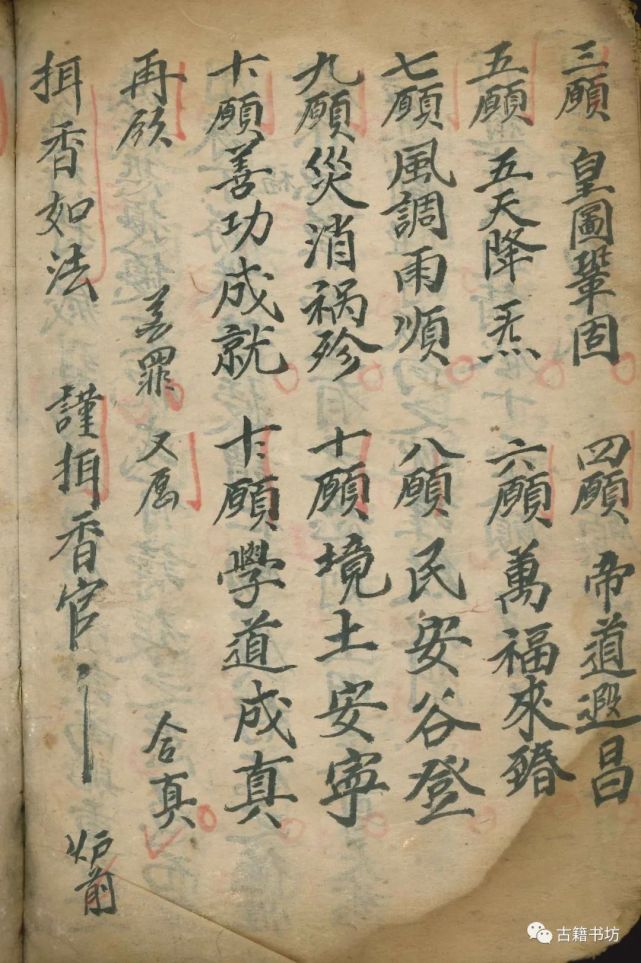 三願 皇圖鞏固 四願 帝道遐昌
五願 五天降炁 六願 萬福來臻
七願 風調雨順 八願 民安谷登
九願 災消祸殄 十願 境土安寧
十一願 善功成就 十二願 學道成真
再願 罪 又愿 合真
揖香如法 謹揖香官 炉前
古籍书坊